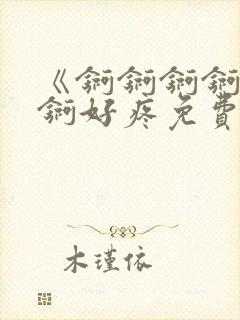 《锕锕锕锕
锕好疼免費
木瑾依